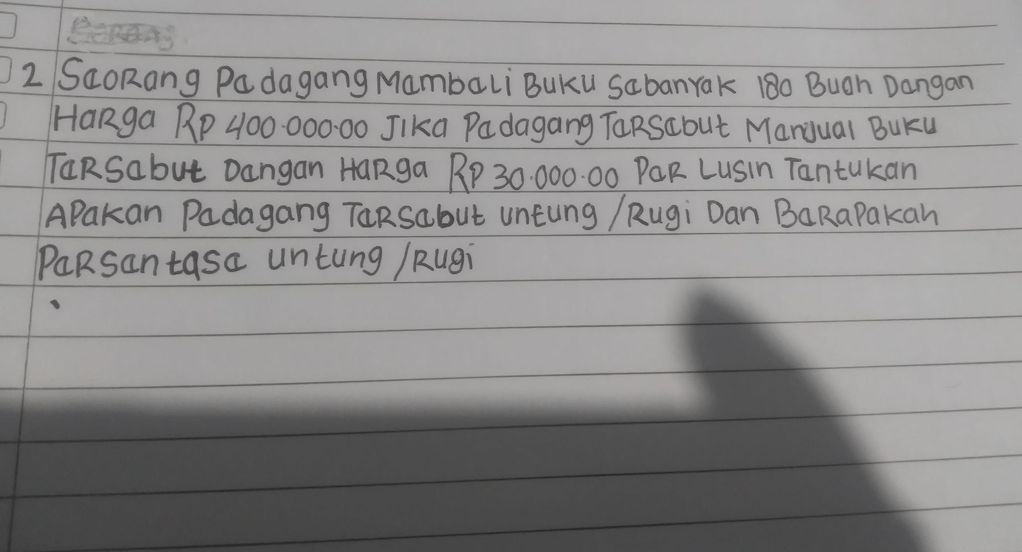 2 Saorang Padagang Mambali Buku Sabanyak 180 Buah Dangan
Harga Rp 400.000.00 Jika Padagang Tarsabut Manjual Buku
Tarsabut Dangan Harga Rp 30.000.00 Par Lusin Tantukan
Apakan Padagang Tarsabut untung /Rugi Dan Barapakah
Parsantasa untung /Rugi